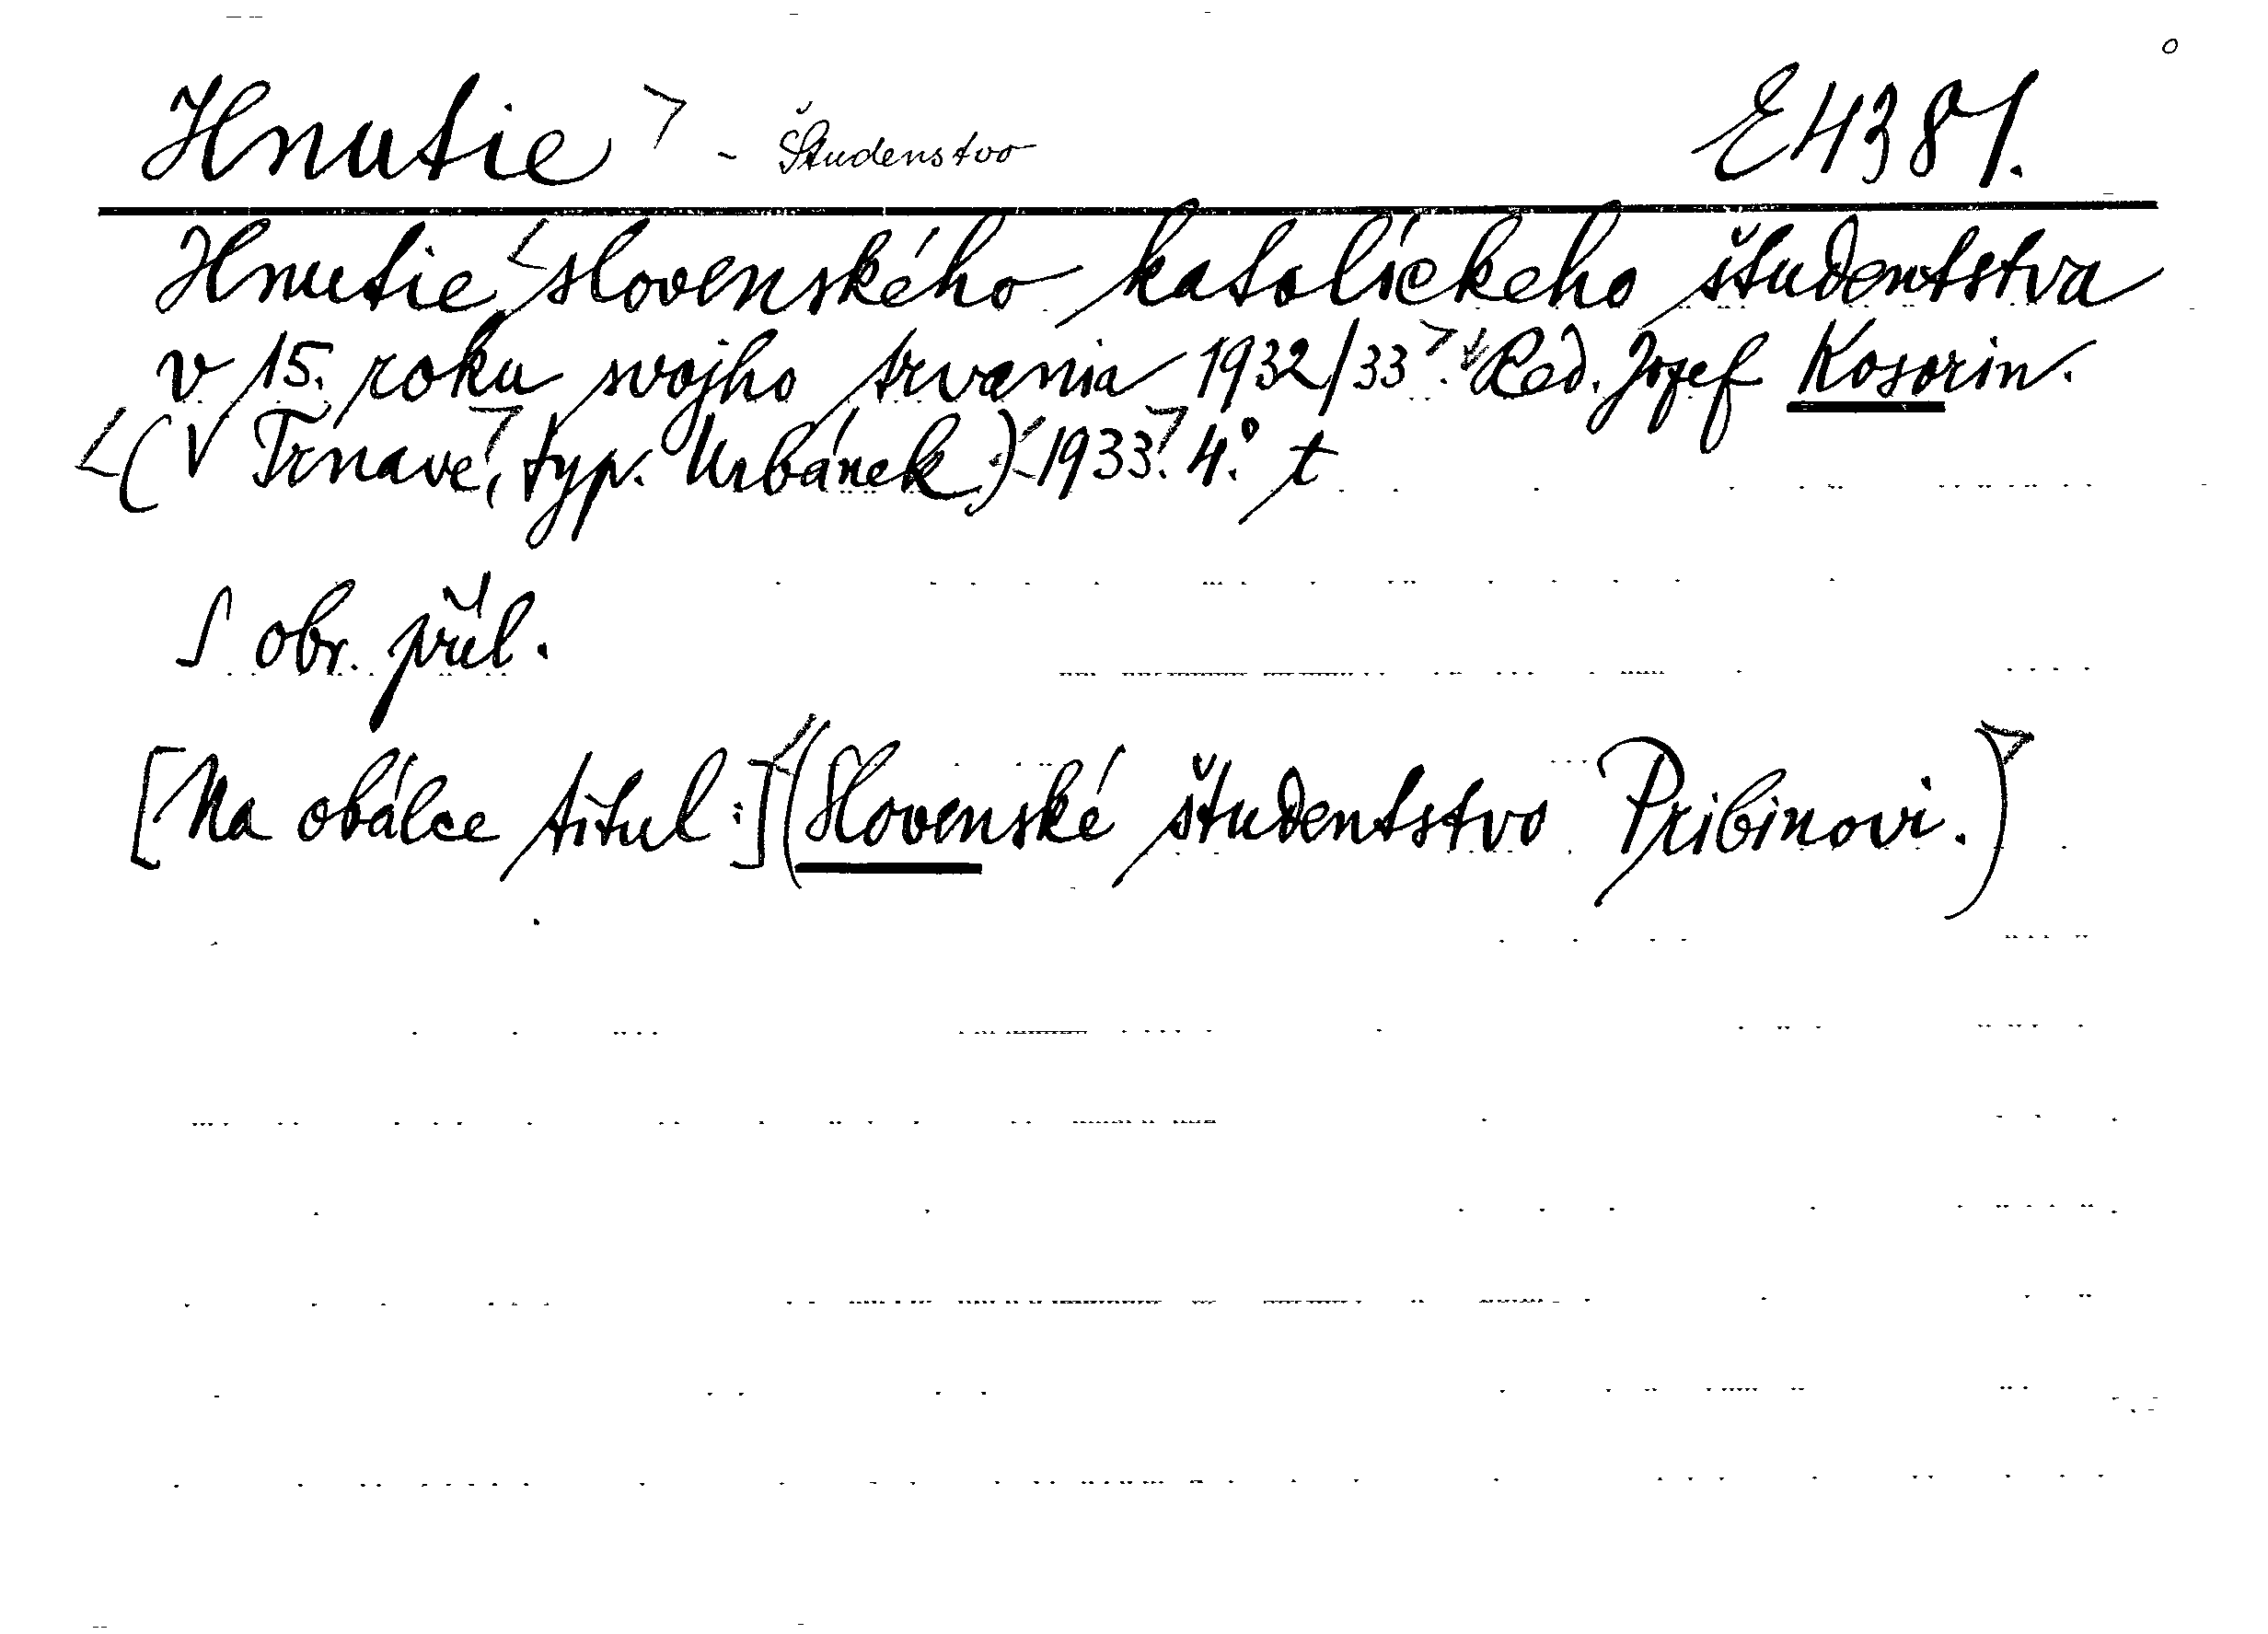 Hnutie - Študenstvo E 4381.
Hnutie slovenského katolíckeho študentstva
v 15. roku svojho trvania 1932/33. Red. Jozef Kosorin.
(V Trnavě, typ. Urbánek) 1933. 4° t
S obr. příl.
[Na obálce titul:] (Slovenské študentstvo Pribinovi.)